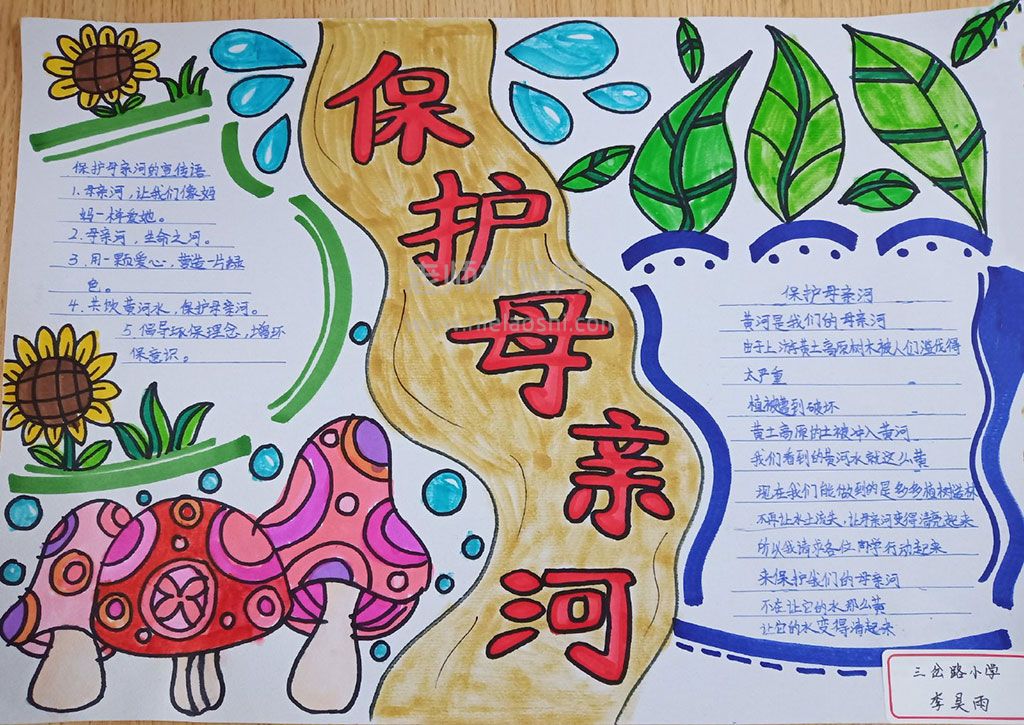 保护母亲河
保护母亲河的宣传语
1. 母亲河，让我们像妈
妈一样爱她。
2. 母亲河，生命之河。
3. 用一颗爱心，营造一片绿
色。
4. 共饮黄河水，保护母亲河。
5. 倡导环保理念，增环
保意识。
保护母亲河
黄河是我们的母亲河
由于上游黄土高原树木被人们滥伐得
太严重
植被遭到破坏
黄土高原的土被冲入黄河
我们看到的黄河水就这么黄
现在我们能做到的是多多植树造林
不再让水土流失，让母亲河变得清亮起来
所以我请求各位同学行动起来
来保护我们的母亲河
不在让它的水那么黄
让它的水变得清起来
三岔路小学
李昊雨